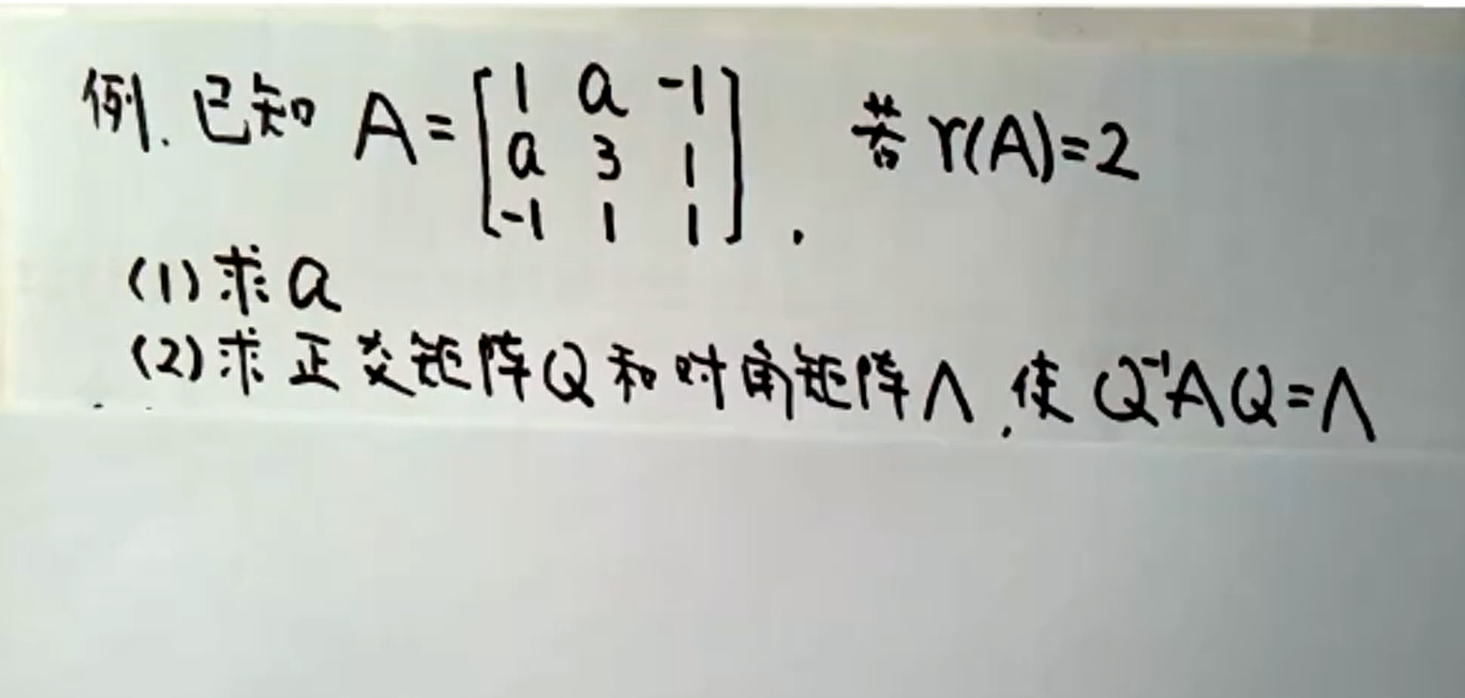 例. 已知 A=[1 a -1
a 3 1
-1 1 1]. 若 r(A)=2
(1) 求 a
(2) 求正交矩阵Q和对角矩阵Λ, 使 Q⁻¹AQ=Λ